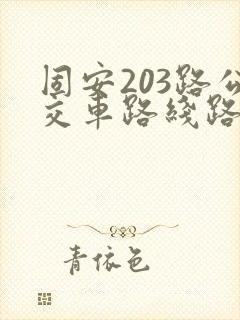 固安203路公
交车路线路
青依色